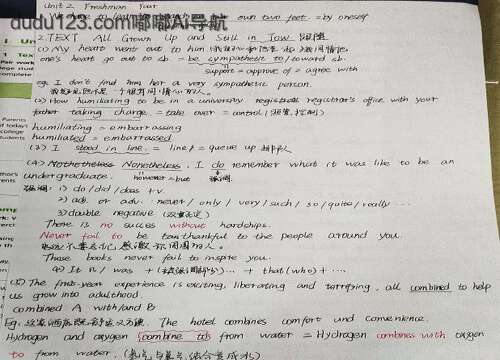 Unit 2 Freshman Year
own two feet = by oneself
dudu123.com嘟嘟AI导航
2. TEXT All Grown Up and Still in Tow
(1) My heart went out to him
one's heart go out to sb. = be sympathetic to / toward sb.
support = approve of = agree with
eg. I don't find him her a very sympathetic person.
(2) How humiliating to be in a university registrar's office with your
father taking charge = take over = control
humiliating = embarrassing
humiliated = embarrassed
(3) I stood in line. = line = queue up 排队
(4) Nonetheless Nonetheless, I do remember what it was like to be an
undergraduate. however = but 强调
强调: 1) do / did / does + v
2) adj. or adv. never / only / very / such / so / quite / really ...
3) double negative (双重否定)
There is no success without hardships.
Never fail to be thankful to the people around you.
Those books never fail to inspire you.
4) It is / was + ... + that (who) + ...
(5) The first-year experience is exciting, liberating and terrifying, all combined to help
us grow into adulthood.
combined A with/and B
Eg: The hotel combines comfort and convenience.
Hydrogen and oxygen combine to from water = Hydrogen combines with oxygen
to from water.